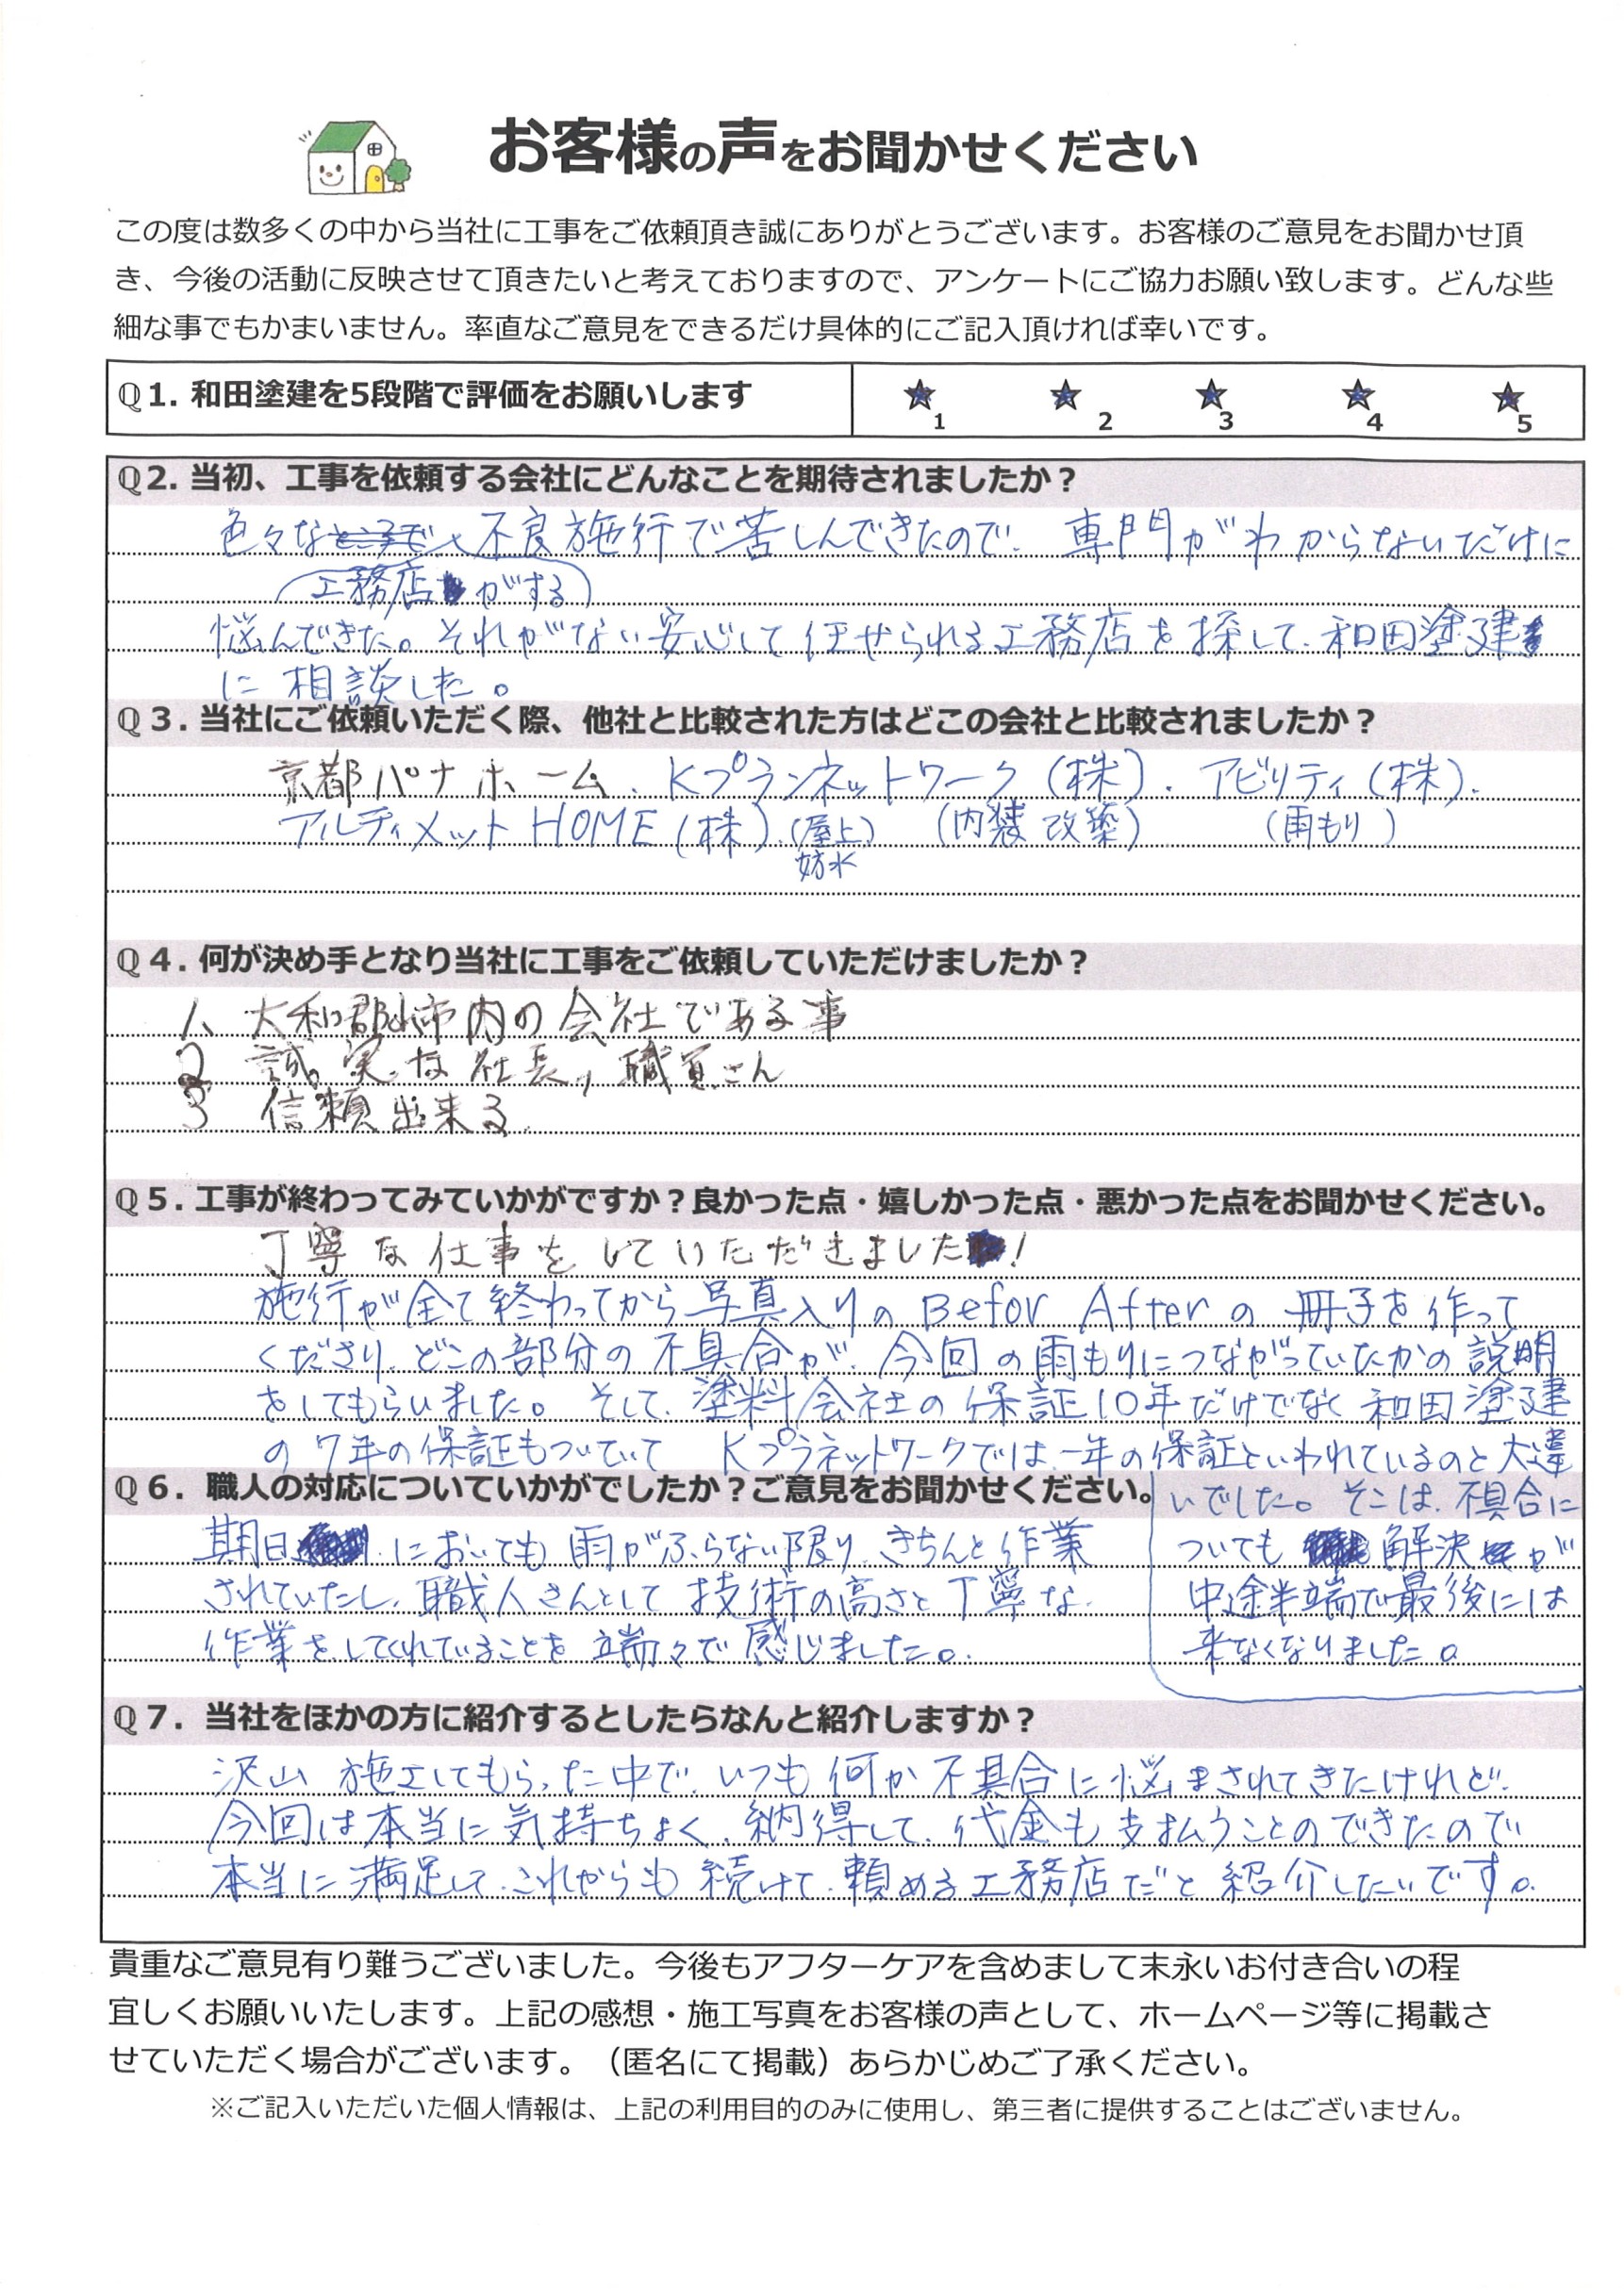 お客様の声をお聞かせください
この度は数多くの中から当社に工事をご依頼頂き誠にありがとうございます。お客様のご意見をお聞かせ頂
き、今後の活動に反映させて頂きたいと考えておりますので、アンケートにご協力お願い致します。どんな些
細な事でもかまいません。率直なご意見をできるだけ具体的にご記入頂ければ幸いです。
Q1. 和田塗建を5段階で評価をお願いします ★1 ★2 ★3 ★4 ★5
Q2. 当初、工事を依頼する会社にどんなことを期待されましたか？
色々な不良施行で苦しんできたので、専門がわからないだけに
(工務店がする)
悩んできた。それがない安心して任せられる工務店を探して、和田塗建
に相談した。
Q3. 当社にご依頼いただく際、他社と比較された方はどこの会社と比較されましたか？
京都パナホーム、Kプランネットワーク(株)、アビリティ(株)、
アルティメットHOME(株)、(屋上 (内装改築) (雨もり)
妨水)
Q4. 何が決め手となり当社に工事をご依頼していただけましたか？
1、大和郡山市内の会社である事
2 誠実な社長、職員さん
3 信頼出来る
Q5. 工事が終わってみていかがですか？良かった点・嬉しかった点・悪かった点をお聞かせください。
丁寧な仕事をしていただきました!
施行が全て終わってから写真入りのBefor Afterの冊子を作って
くださり、どこの部分の不具合が、今回の雨もりにつながっていたかの説明
をしてもらいました。そして、塗料会社の保証10年だけでなく和田塗建
の7年の保証もついていて Kプラネットワークでは、一年の保証といわれているのと大違
いでした。そこは、不具合に
ついても解決が
中途半端で最後には
来なくなりました。
Q6. 職人の対応についていかがでしたか？ご意見をお聞かせください。
期日においても雨がふらない限り、きちんと作業
されていたし、職人さんとして技術の高さと丁寧な
作業をしてくれていることを端々で感じました。
Q7. 当社をほかの方に紹介するとしたらなんと紹介しますか？
沢山施工してもらった中で、いつも何か不具合に悩まされてきたけれど、
今回は本当に気持ちよく、納得して、代金も支払うことのできたので
本当に満足して、これからも続けて、頼める工務店だと紹介したいです。
貴重なご意見有り難うございました。今後もアフターケアを含めまして末永いお付き合いの程
宜しくお願いいたします。上記の感想・施工写真をお客様の声として、ホームページ等に掲載さ
せていただく場合がございます。（匿名にて掲載）あらかじめご了承ください。
※ご記入いただいた個人情報は、上記の利用目的のみに使用し、第三者に提供することはございません。